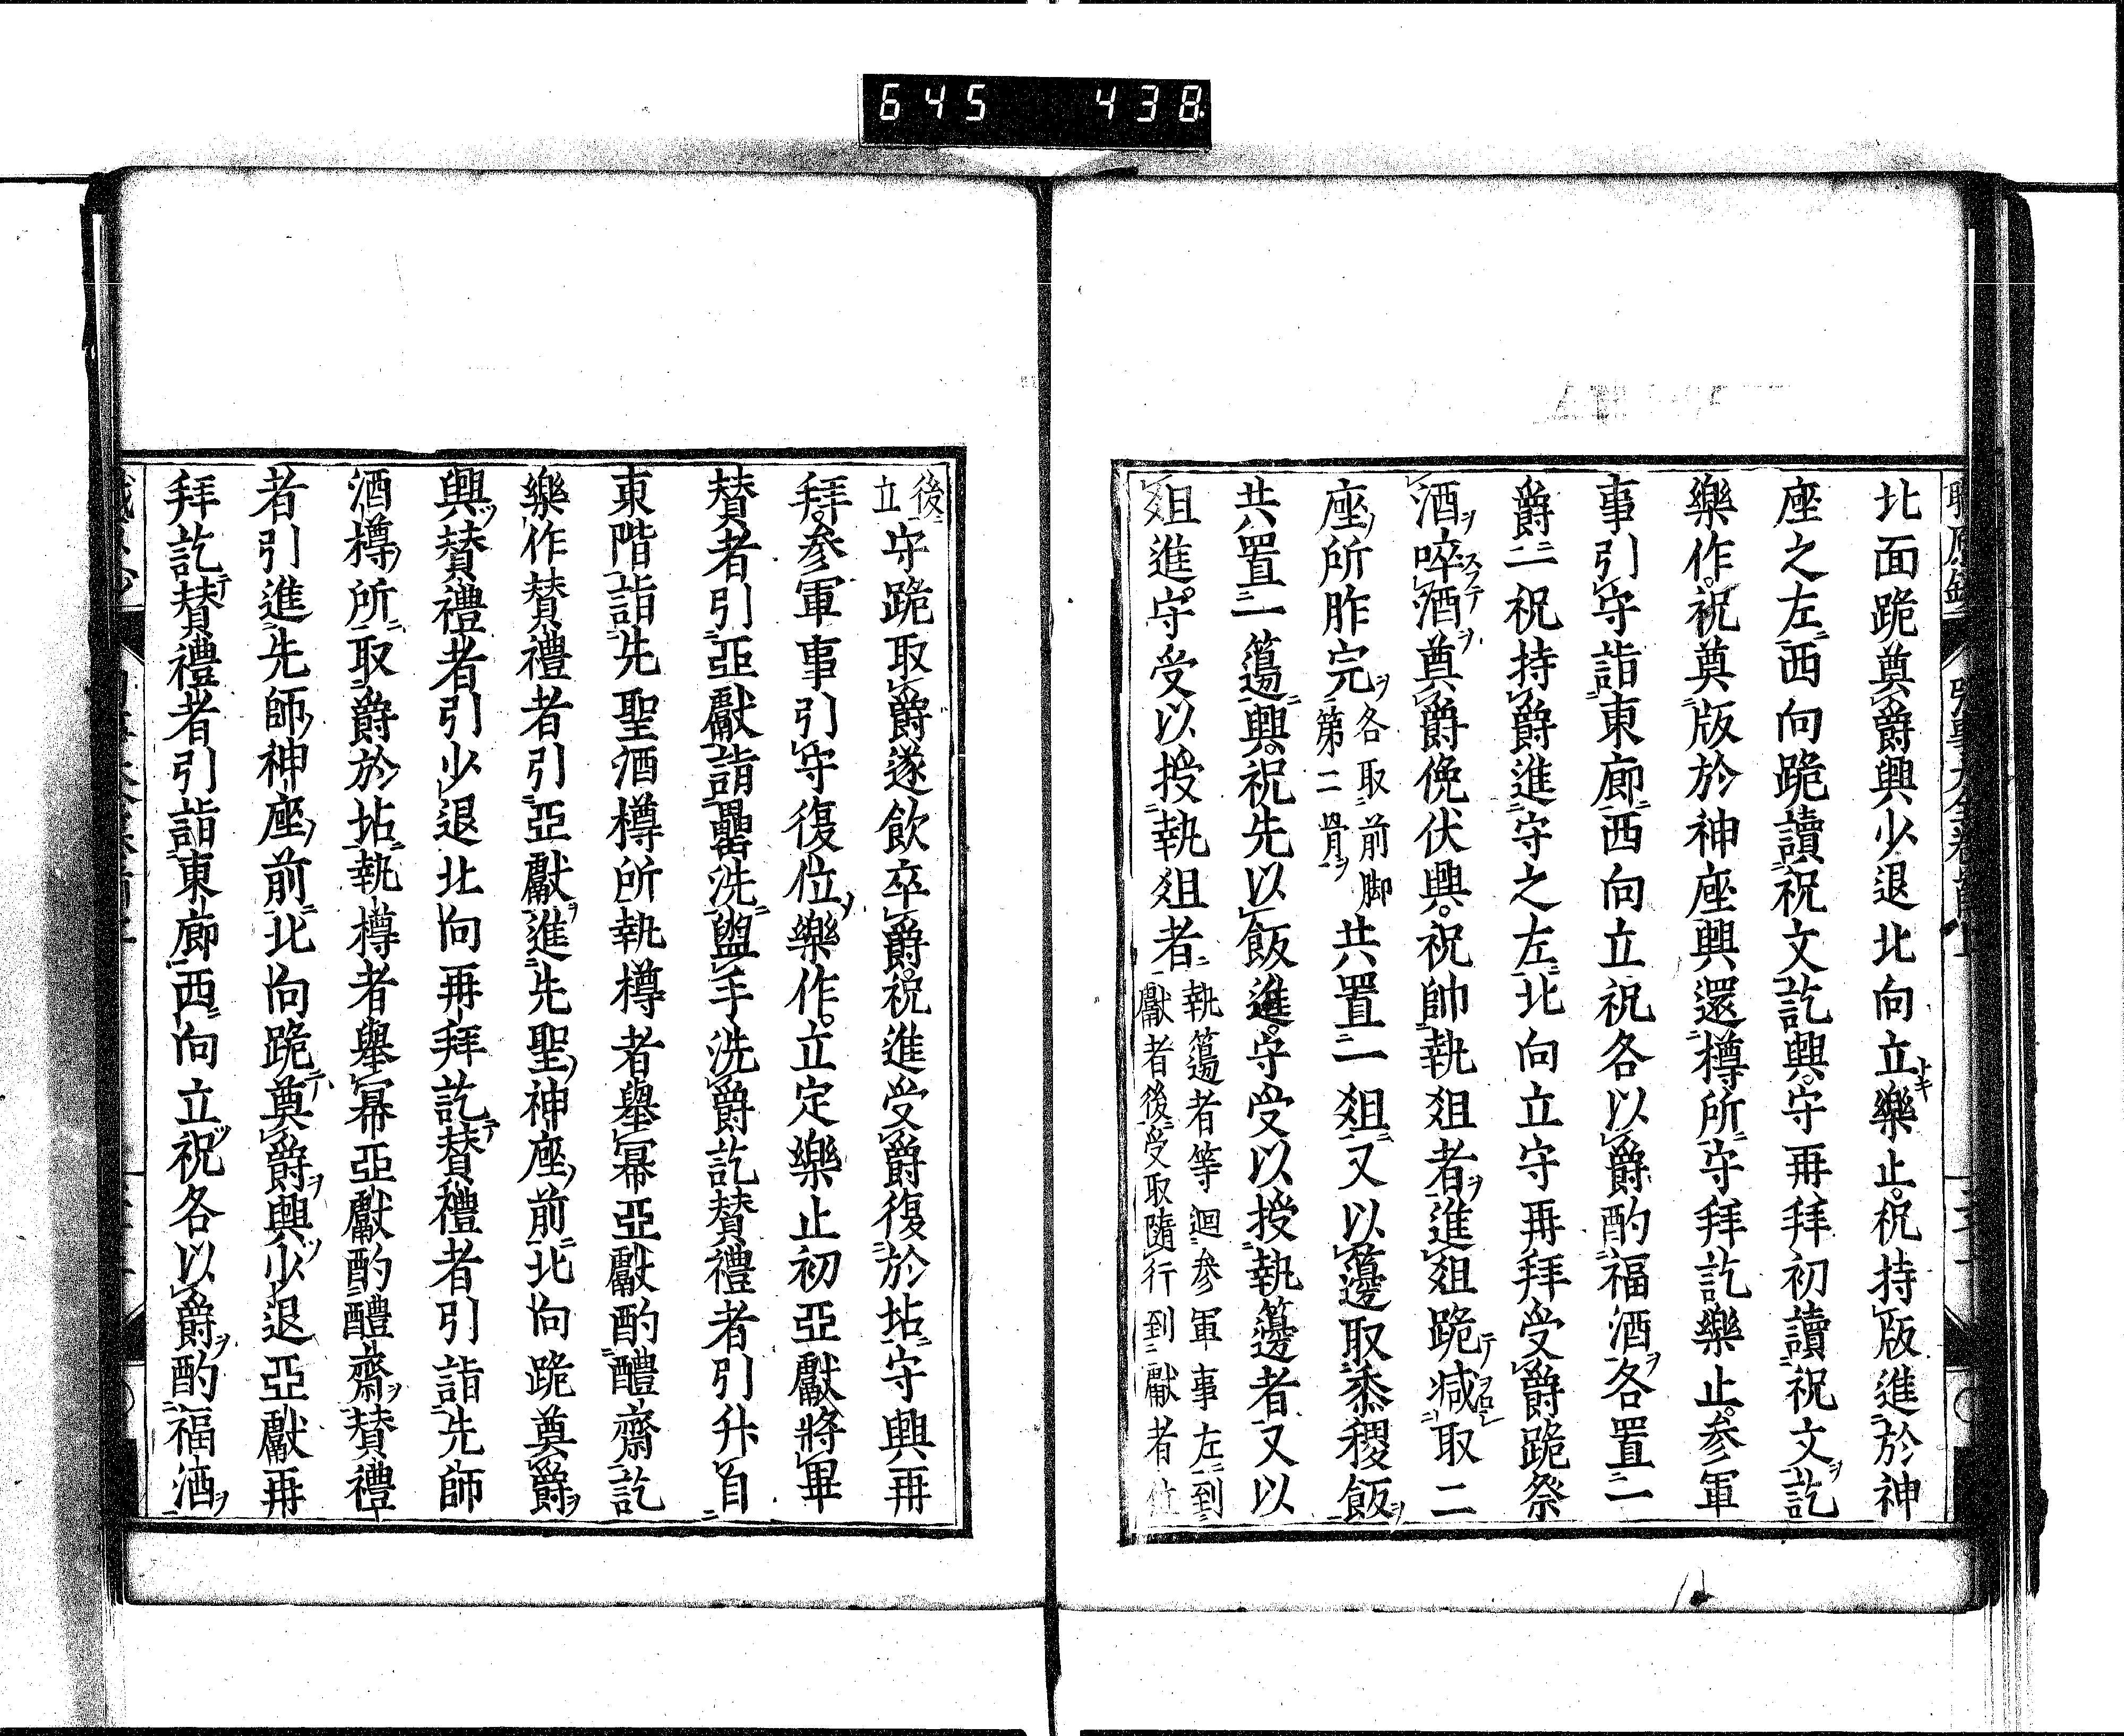 645 438
北面跪奠爵興少退北向立樂止祝持版進於神
座之左西向跪讀祝文訖興守再拜初讀祝文訖
樂作祝奠版於神座興還樽所守拜訖樂止參軍
事引守詣東廊西向立祝各以爵酌福酒各置一
爵一祝持爵進守之左北向立守再拜受爵跪祭
酒啐酒奠爵俛伏興祝帥執俎者進俎跪減取二
座所胙完各取前脚第二骨共置一俎又以籩取黍稷飯
共置一籩興祝先以飯進守受以授執籩者又以
俎進守受以授執俎者執籩者等迴參軍事左到獻者後受取隨行到獻者位
後立守跪取爵遂飲卒爵祝進受爵復於坫守興再
拜參軍事引守復位樂作立定樂止初亞獻將畢
賛者引亞獻詣罍洗盥手洗爵訖賛禮者引升自
東階詣先聖酒樽所執樽者舉冪亞獻酌醴齋訖
樂作賛禮者引亞獻進先聖神座前北向跪奠爵
興賛禮者引少退北向再拜訖賛禮者引詣先師
酒樽所取爵於坫執樽者舉冪亞獻酌醴齋賛禮
者引進先師神座前北向跪奠爵興少退亞獻再
拜訖賛禮者引詣東廊西向立祝各以爵酌福酒